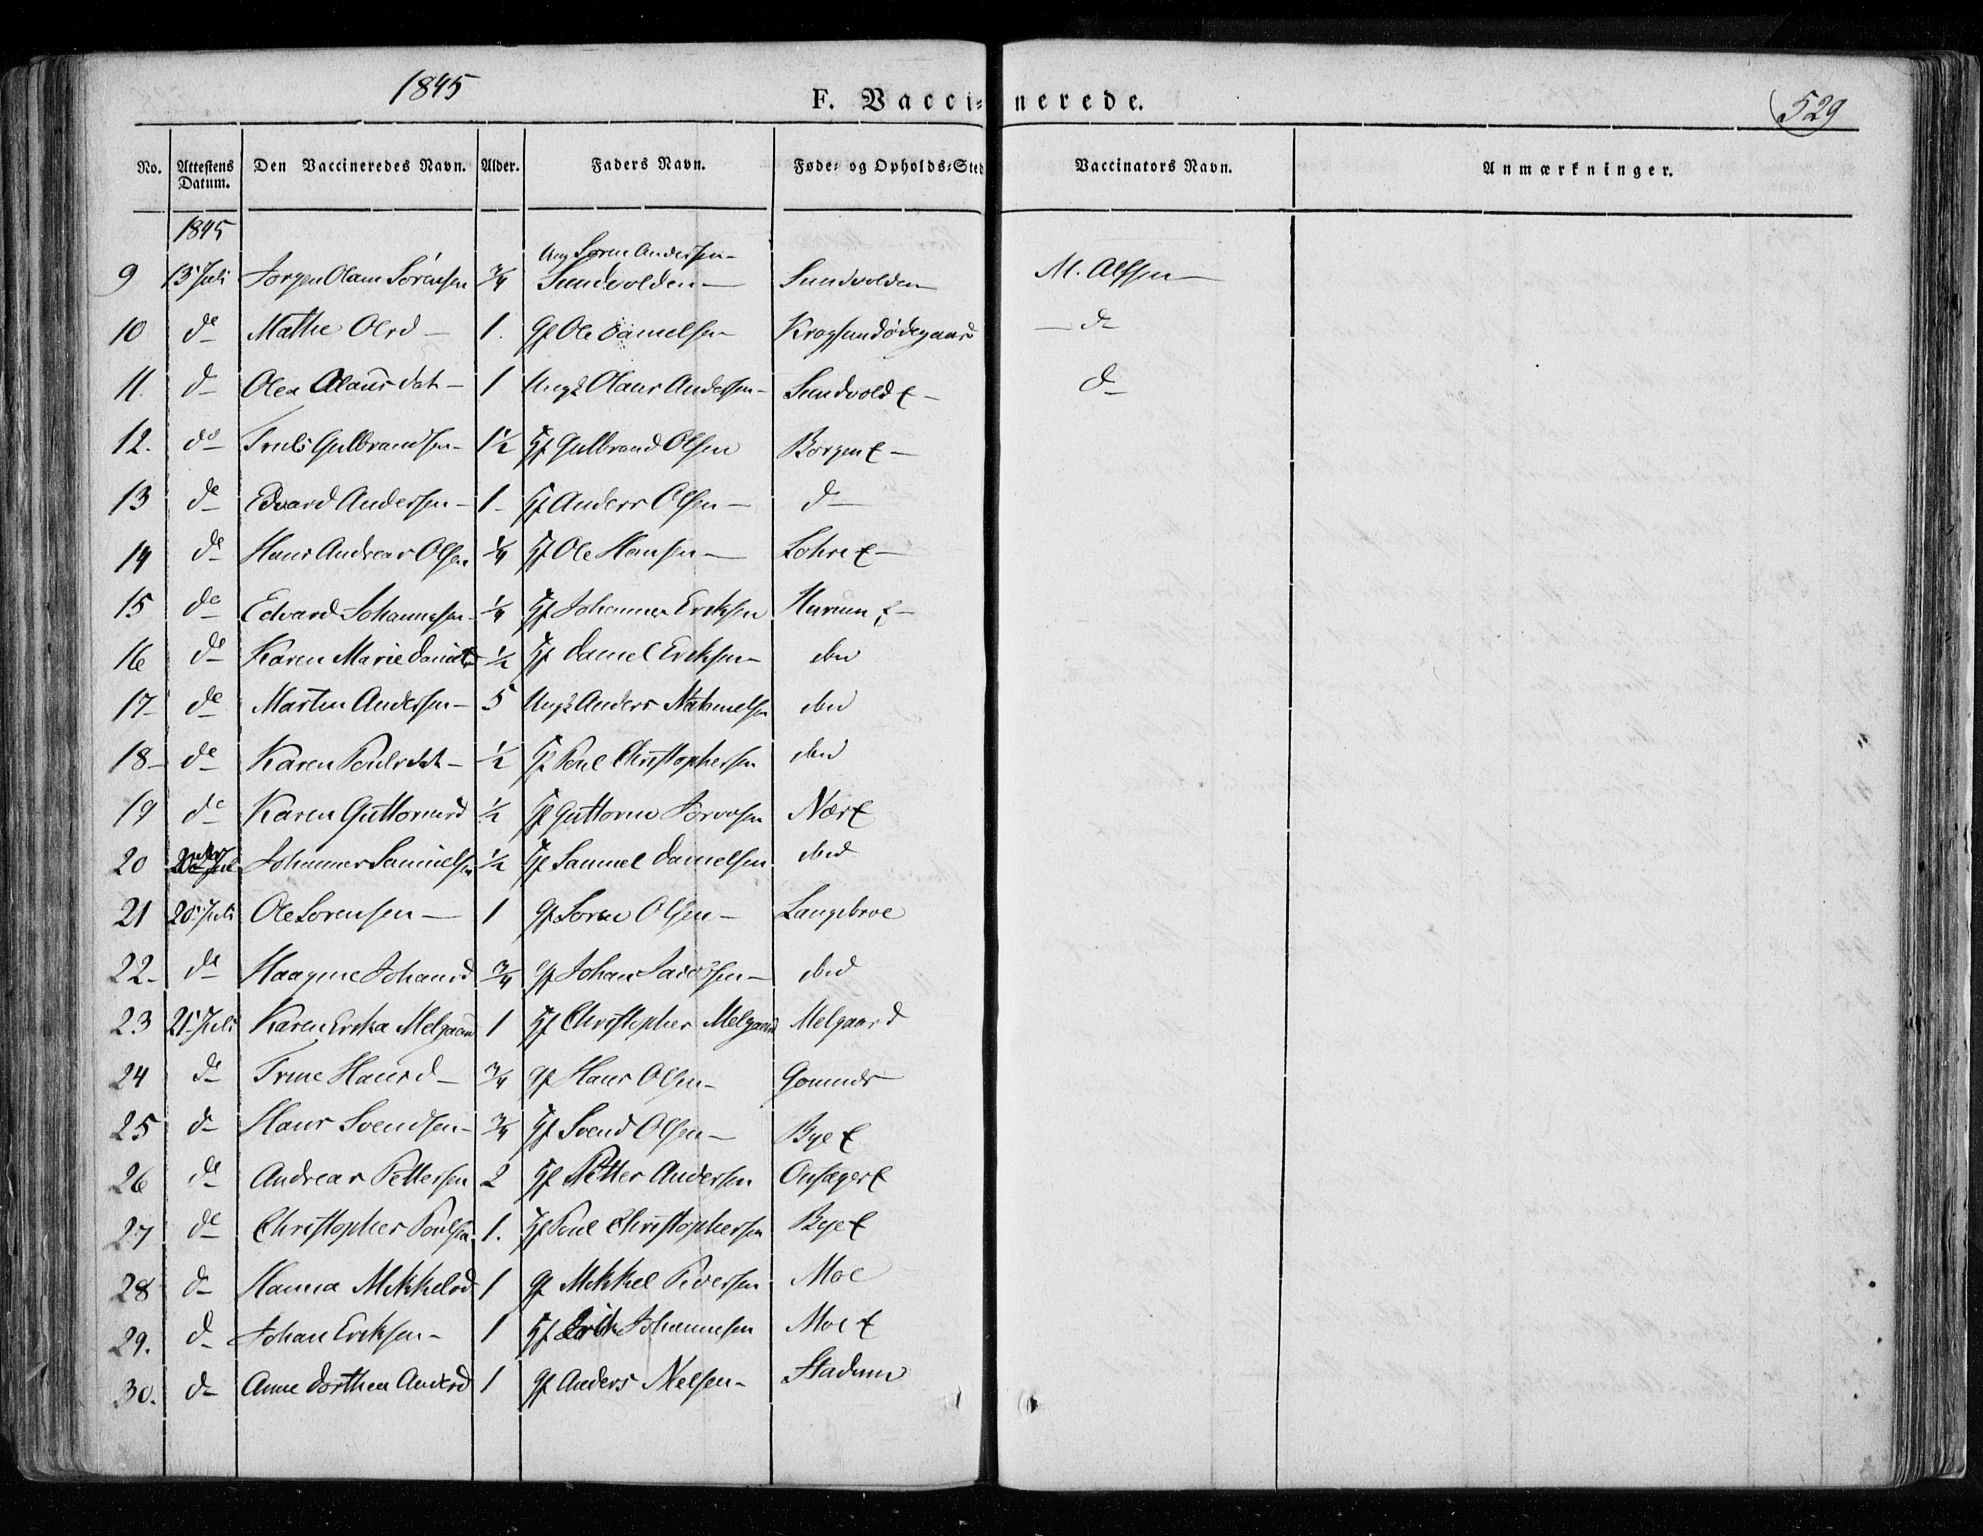 1845
F. Vaccinerede.
529
No. Attestens Datum. Den Vaccineredes Navn. Alder. Faders Navn. Føde- og Opholds-Sted Vaccinators Navn. Anmærkninger.
1845
Ung Søren Andersen
9 13 Juli Jørgen Olam Sørensen 3/4 Sundvolden Sundvolden M. Alfsen
10 do Mathe Olsd 1. Gf Ole Danielsen Krogsundødegaard do
11. do Olea Olausdat 1 Ungk Olaus Andersen Sundvold E do
12. do Truls Gulbrandsen 1 1/2 Hf Gulbrand Olsen Borgen E
13 do Edvard Andersen 1 Hf Anders Olsen do
14 do Hans Andreas Olsen 1/4 Hf Ole Hansen Lohre E
15 do Edvard Johannesen 1/4 Hf Johannes Eriksen Hurum E
16 do Karen Marie Danielsd 1/2 Hf Daniel Eriksen ibid
17 do Martin Andersen 5 Ungk Anders Nathanielsen ibid
18 do Karen Poulsdat 1/2 Hf Poul Christophersen ibid
19 do Karen Guttormsd 1/2 Hf Guttorm Nær E
20 Johannes Samuelsen 1/2 Hf Samuel Danielsen ibid
21 20 Juli Ole Sorensen 1 Gf Soren Olsen Langebroe
22 do Haagine Johansd 3/4 Gf Johan ibid
23 21 Juli Karen Erika Melgaard 1 Hf Christopher Melgaard Melgaard
24 do Trine Hansd 3/4 Gf Hans Olsen Gomnæs
25 do Hans Svendsen 3/4 Hf Svend Olsen Bye E
26 do Andreas Pettersen 2 Hf Petter Andersen Onsager E
27 do Christopher Poulsen 1. Hf Poul Christophersen Bye E
28 do Hanna Mikkelsd 1 Gf Mikkel Iversen Moe
29. do Johan Eriksen 1 Hf Erik Johannesen Moe E
30. do Anne Dorthea Andersd 1 Gf Anders Nielsen Stadum